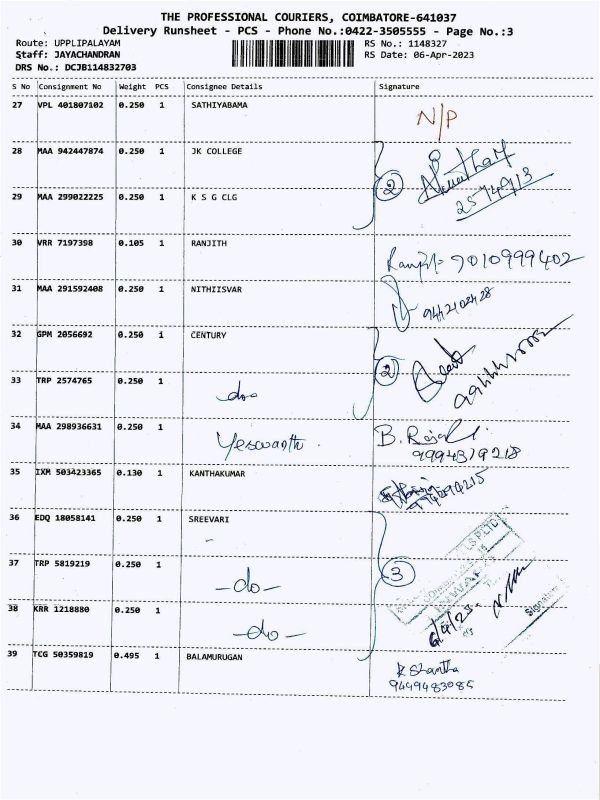 THE PROFESSIONAL COURIERS, COIMBATORE-641037
Delivery Runsheet - PCS - Phone No.:0422-3505555 - Page No.:3
Route: UPPLIPALAYAM RS No.: 1148327
Staff: JAYACHANDRAN RS Date: 06-Apr-2023
DRS No.: DCJB114832703
S No Consignment No Weight PCS Consignee Details Signature
27 VPL 401807102 0.250 1 SATHIYABAMA N/P
28 MAA 942447874 0.250 1 JK COLLEGE
2
29 MAA 299022225 0.250 1 K S G CLG
30 VRR 7197398 0.105 1 RANJITH 9010999402
31 MAA 291592408 0.250 1 NITHIISVAR
32 GPM 2056692 0.250 1 CENTURY
2
33 TRP 2574765 0.250 1 do
34 MAA 298936631 0.250 1 Yeswanth
9994379218
35 IXM 503423365 0.130 1 KANTHAKUMAR
36 EDQ 18058141 0.250 1 SREEVARI
3
37 TRP 5819219 0.250 1 -do-
38 KRR 1218880 0.250 1 -do- 6/4/23
39 TCG 50359819 0.495 1 BALAMURUGAN R Shantha
9449483085